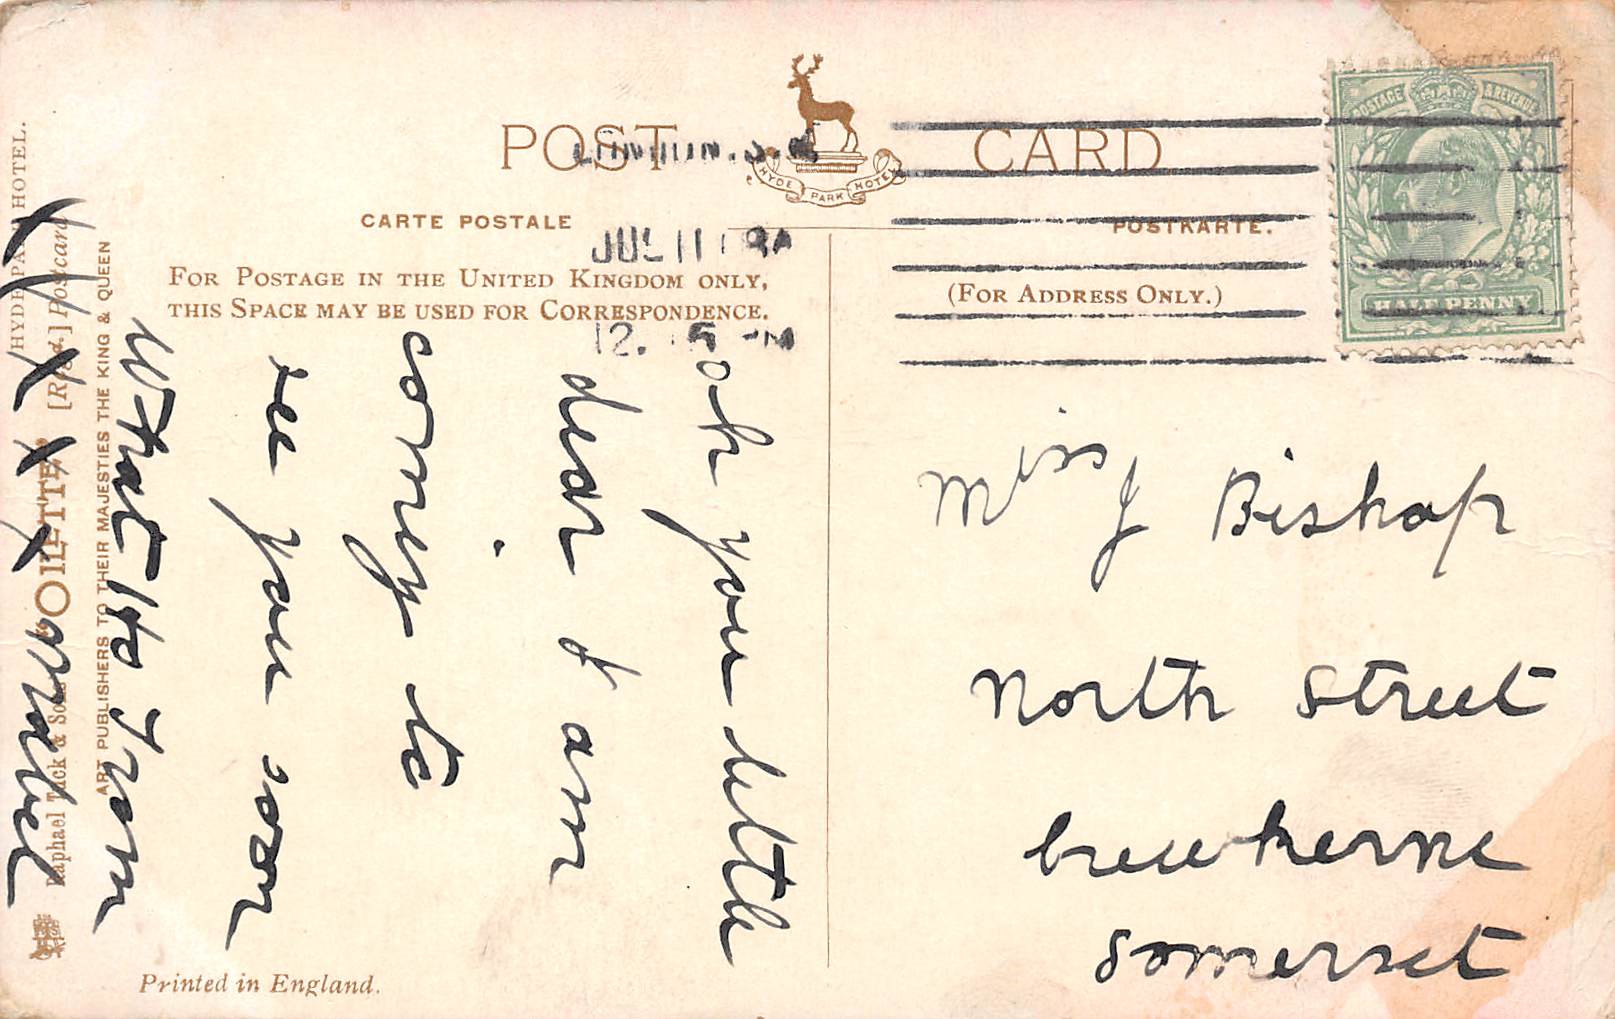 POST CARD
HYDE PARK HOTEL
CARTE POSTALE
POSTKARTE.
FOR POSTAGE IN THE UNITED KINGDOM ONLY,
THIS SPACE MAY BE USED FOR CORRESPONDENCE.
(FOR ADDRESS ONLY.)
POSTAGE & REVENUE
HALF PENNY
JUL 11
oh you little
dear I am
coming to
see you soon
What Ho From
X X X X
Miss J Bishop
North Street
Crewkerne
Somerset
HYDE PARK HOTEL.
Raphael Tuck & Sons' "OILETTE" [Regd.] Postcard
ART PUBLISHERS TO THEIR MAJESTIES THE KING & QUEEN
Printed in England.